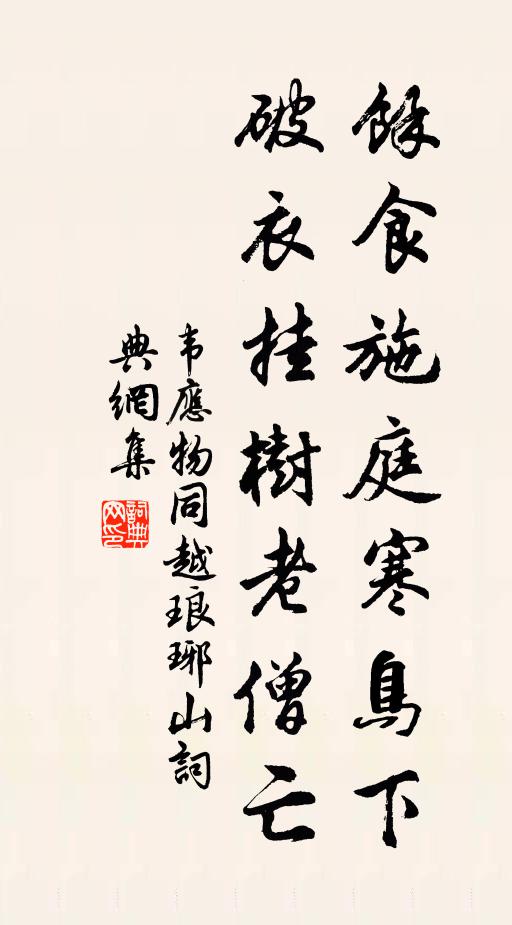 餘食施庭寒鳥下
破衣挂樹老僧亡
韦應物同越琅琊山詞
典網集
詞典网印